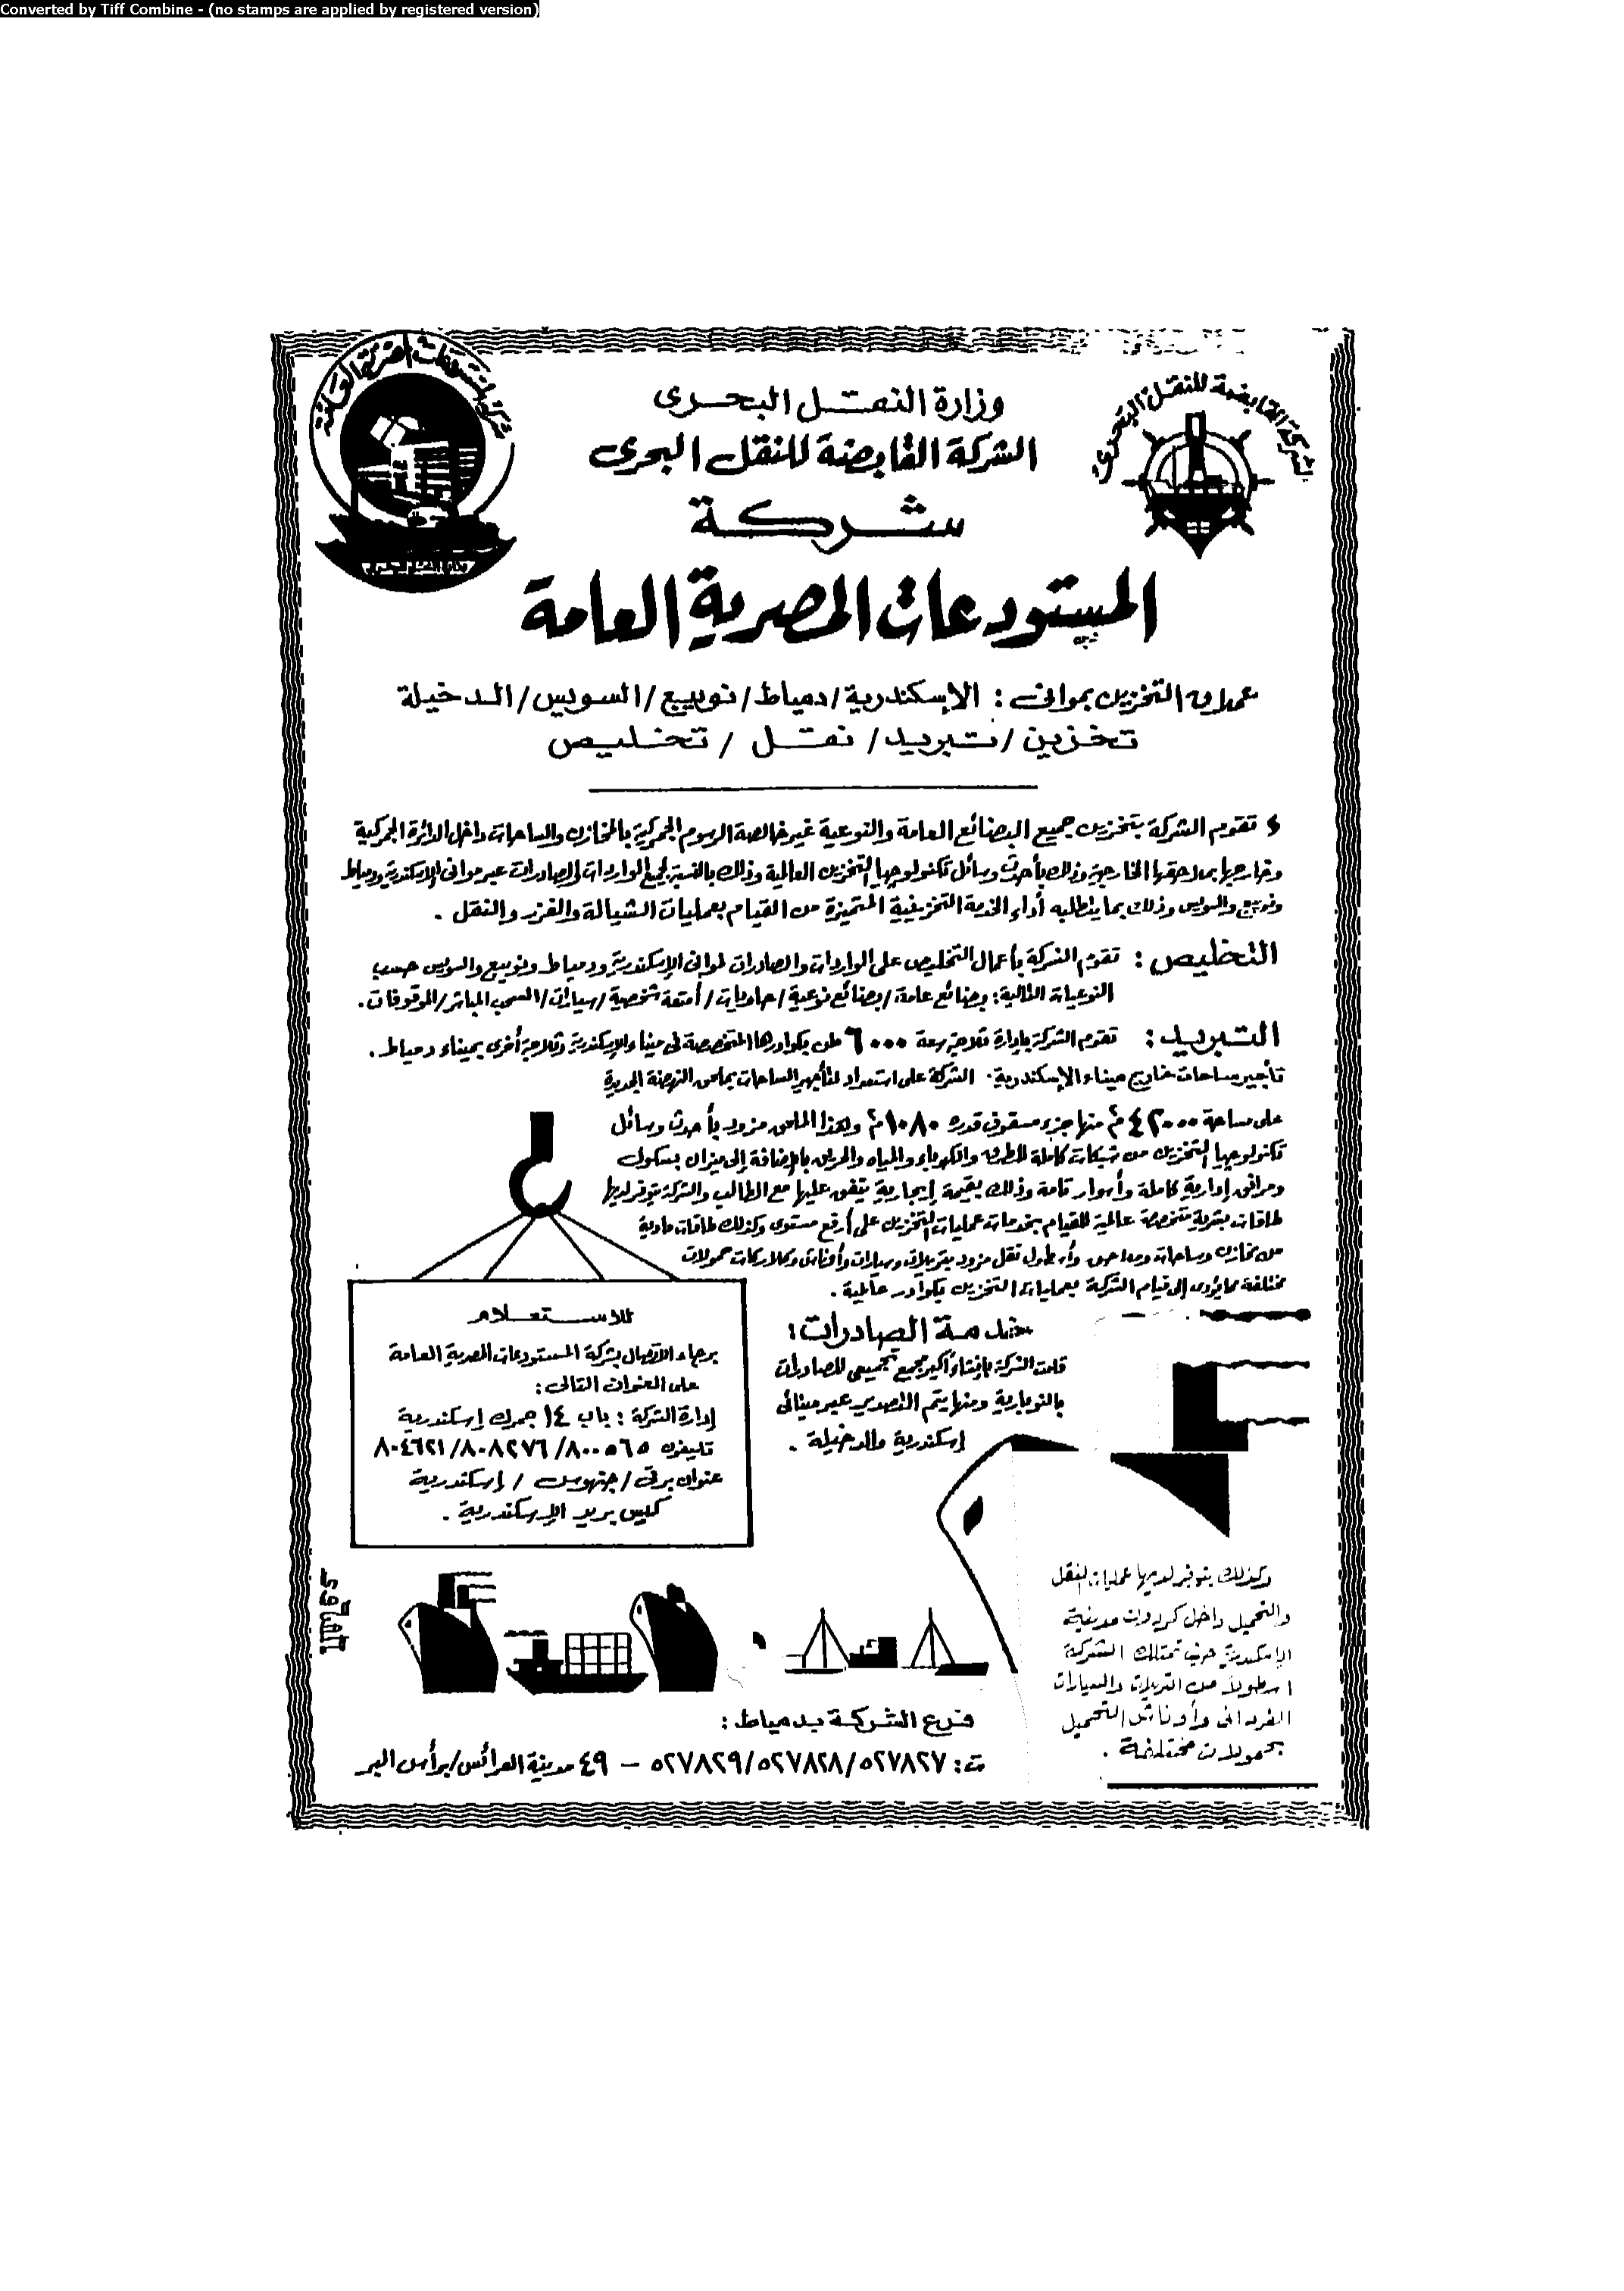 Converted by Tiff Combine - (no stamps are applied by registered version)
شركة المستودعات المصرية العامة
الشركة القابضة للنقل البحرى
وزارة النقل البحرى
الشركة القابضة للنقل البحرى
شركة
المستودعات المصرية العامة
عملاق التخزين بموانى : الإسكندرية/دمياط/نويبع/السويس/الدخيلة
تخزين /تبريد/ نقل / تخليص
تقوم الشركة بتخزين جميع البضائع العامة والنوعية غير خالصة الرسوم الجمركية بالمخازن والساحات داخل الدائرة الجمركية
وخارجها بملاحقها الخارجية وذلك بأحدث وسائل تكنولوجيا التخزين العالية وذلك بالنسبة لجميع الواردات والصادرات عبر موانى الإسكندرية ودمياط
ونويبع والسويس وذلك بما يتطلبه أداء الخدمة التخزينية المتميزة من القيام بعمليات الشيالة والفرز والنقل .
التخليص : تقوم الشركة بأعمال التخليص على الواردات والصادرات لموانى الإسكندرية ودمياط ونويبع والسويس حسب
النوعيات التالية : بضائع عامة/بضائع نوعية/حاويات/أمتعة شخصية/سيارات/السحب المباشر/الموقوفات.
التبريد : تقوم الشركة بإدارة ثلاجة سعة ٦٠٠٠ طن بكوادرها المتخصصة فى ميناء الإسكندرية وثلاجة أخرى بميناء دمياط.
تأجير ساحات خارج ميناء الإسكندرية. الشركة على استعداد لتأجير الساحات بملحق النهضة الجديدة
على ساحة ٤٢٠٠٠ م٢ منها جزء مسقوف قدره ١٠٨٠ م٢ وهذا الملحق مزود بأحدث وسائل
تكنولوجيا التخزين من شبكات كاملة للطرق والكهرباء والمياه والحريق بالإضافة إلى ميزان بسكول
ومرافق إدارية كاملة وأسوار تامة وذلك بقيمة إيجارية يتفق عليها مع الطالب والشركة يتوفر لديها
طاقات بشرية متخصصة عالية للقيام بخدمات عمليات التخزين على أرفع مستوى وكذلك طاقات مادية
من مخازن وساحات وملاحق وأسطول نقل مزود بتريلات وسيارات وأوناش وكلاركات حمولات
مختلفة مما يؤدى إلى قيام الشركة بعمليات التخزين بكوادر عالية .
خدمة الصادرات :
قامت الشركة بإنشاء أكبر مجمع تجميعى للصادرات
بالنوبارية ومنها يتم التصدير عبر مينائى
إسكندرية والدخيلة .
للاستعلام
برجاء الاتصال بشركة المستودعات المصرية العامة
على العنوان التالى :
إدارة الشركة : باب ١٤ جمرك إسكندرية
تليفون ٨٠٠٥٦٥/ ٨٠٨٢٧٦/ ٨٠٤٦٢١
عنوان برقى / جنهوس / إسكندرية
كيس بريد الإسكندرية .
وكذلك يتوفر لديها عمليات النقل
والتحميل داخل كردون مدينة
الإسكندرية حيث تمتلك الشركة
اسطولا من التريلات والسيارات
الفردانى وأوناش التحميل
بحمولات مختلفة .
فرع الشركة بدمياط :
ت : ٥٢٧٨٢٧/٥٢٧٨٢٨/٥٢٧٨٢٩ – ٤٩ مدينة العرائس/برأس البر